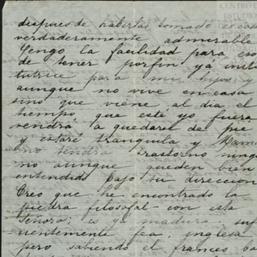 despues de haberlas tomado
verdaderamente admirable
Tengo la facilidad para
de tener por fin ya insti
tutriz para mi hijo
aunque no vive en casa
sino que viene al dia el
tiempo que este yo fuera
vendrá a quedarse de pie
y estaré tranquila y
trastorno ning
no aunque pueden bien
entendido bajo su direccion
Creo que he encontrado la
piedra filosofal con esta
Señora; es ya madura, suf
cientemente fea inglesa
pero sabiendo el frances